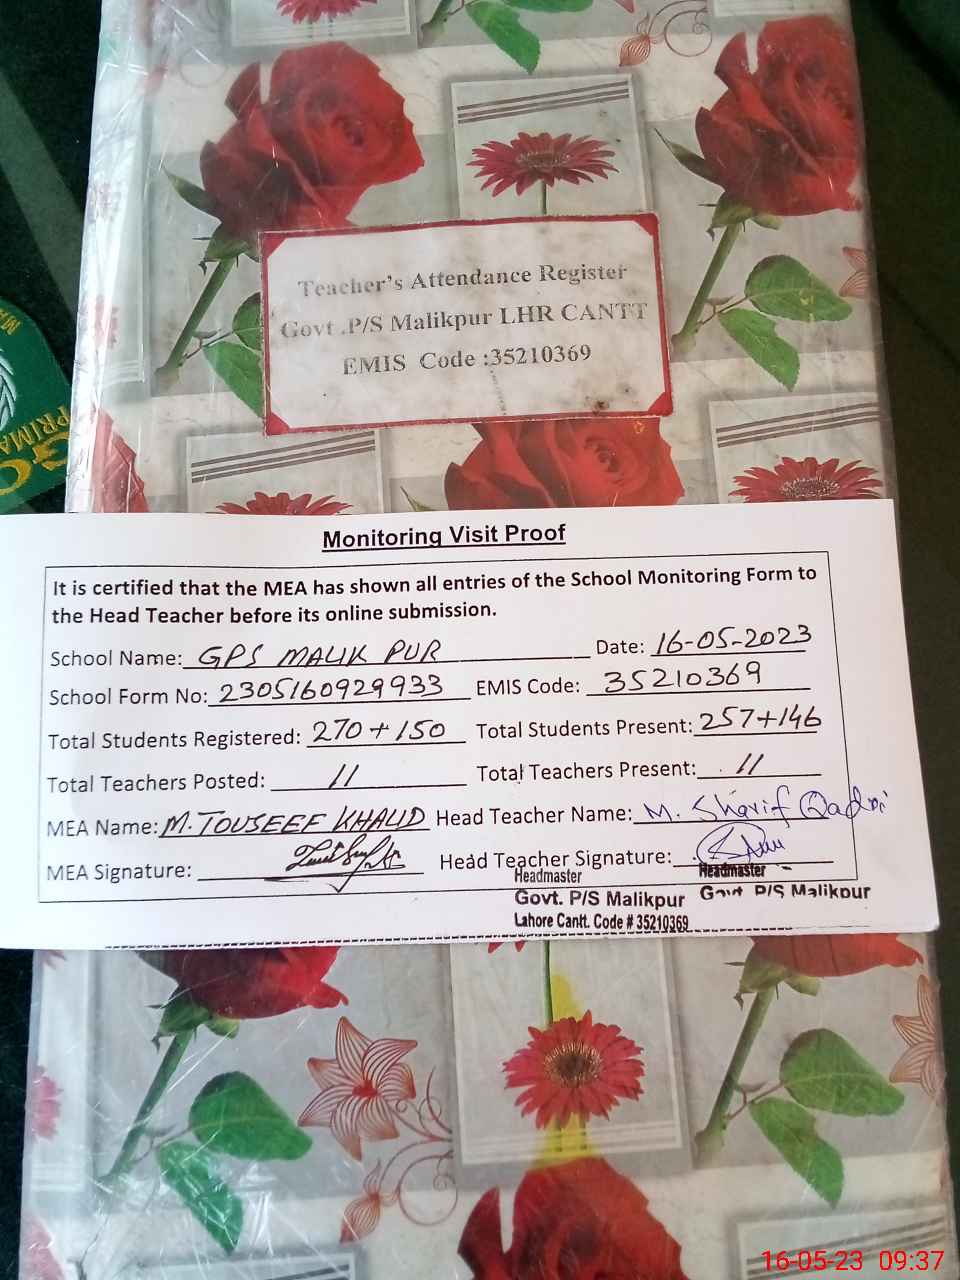 Teacher's Attendance Register
Govt .P/S Malikpur LHR CANTT
EMIS Code :35210369
PRIMA
Monitoring Visit Proof
It is certified that the MEA has shown all entries of the School Monitoring Form to
the Head Teacher before its online submission.
School Name: GPS MALIK PUR Date: 16-05-2023
School Form No: 2305160929933 EMIS Code: 35210369
Total Students Registered: 270+150 Total Students Present: 257+146
Total Teachers Posted: 11 Total Teachers Present: 11
MEA Name: M. TOUSEEF KHALID Head Teacher Name: M. Sharif Qadri
MEA Signature: Head Teacher Signature:
Headmaster Headmaster
Govt. P/S Malikpur Govt P/S Malikpur
Lahore Cantt. Code # 35210369
16-05-23 09:37